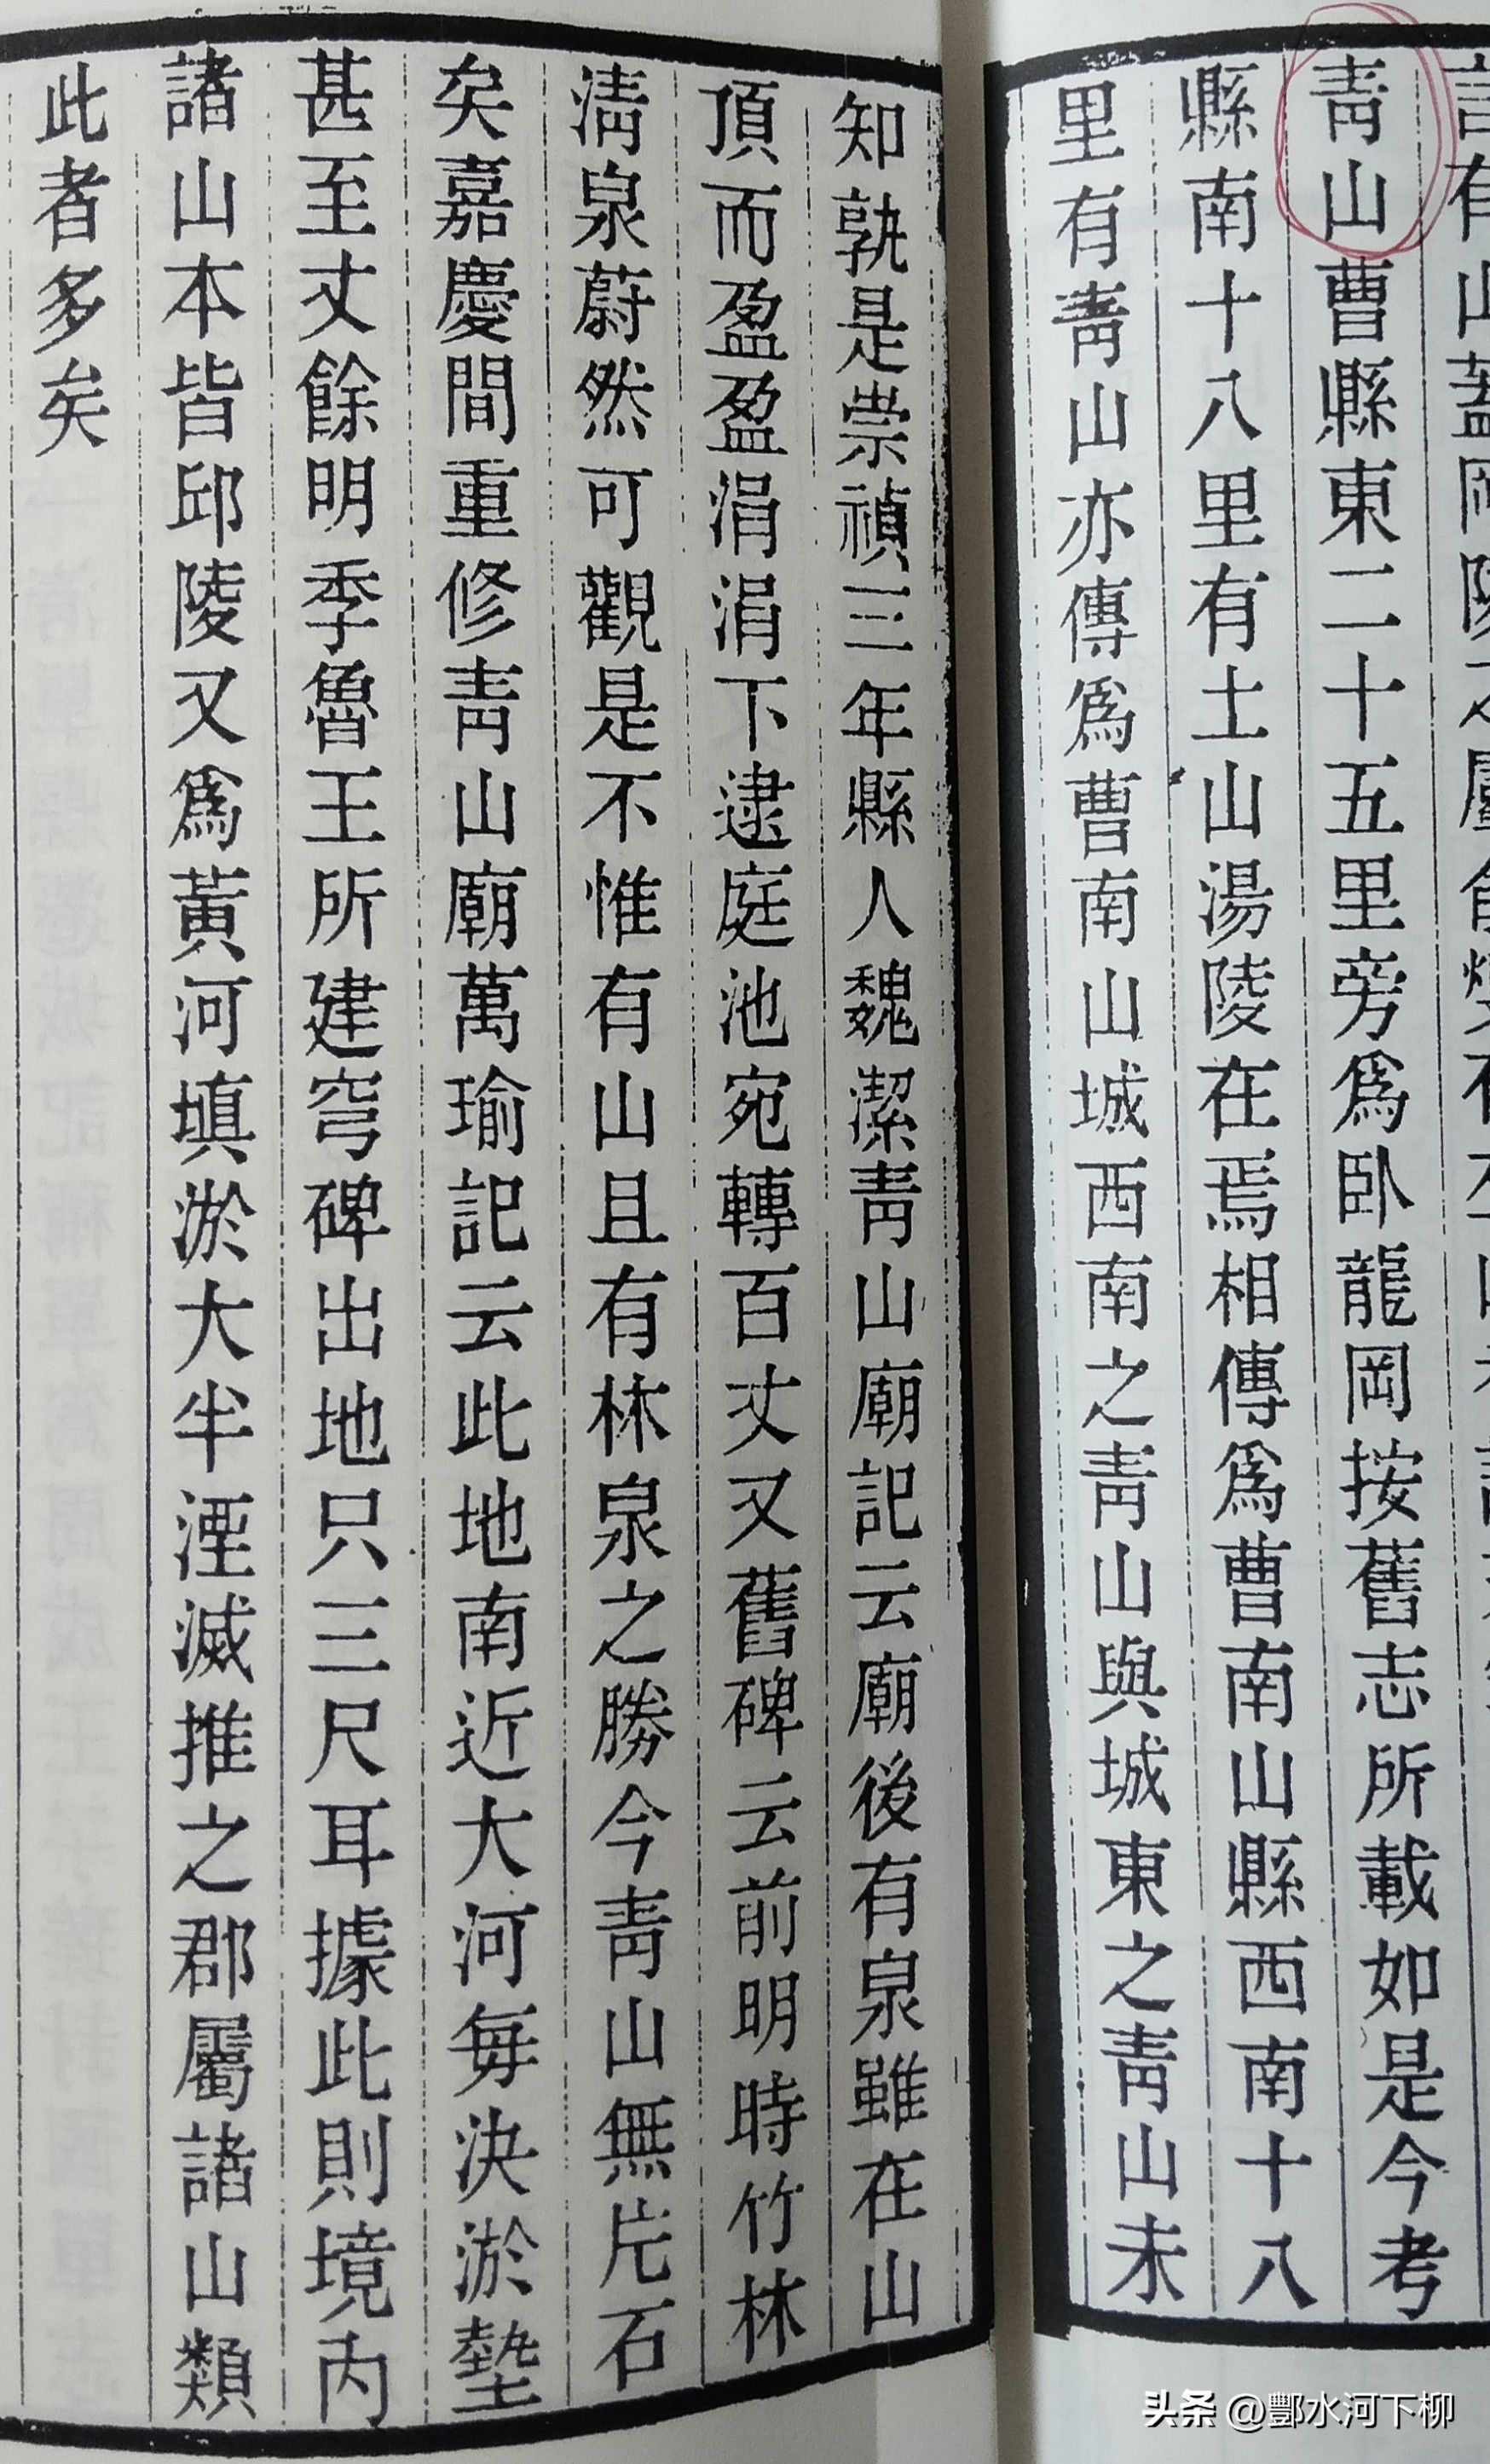 有山蓋岡陵之屬
青山曹縣東二十五里旁爲臥龍岡按舊志所載如是今考
縣南十八里有土山湯陵在焉相傳爲曹南山縣西南十八
里有青山亦傳爲曹南山城西南之青山與城東之青山未
知孰是崇禎三年縣人魏潔青山廟記云廟後有泉雖在山
頂而盈盈涓涓下逮庭池宛轉百丈又舊碑云前明時竹林
清泉蔚然可觀是不惟有山且有林泉之勝今青山無片石
矣嘉慶間重修青山廟萬瑜記云此地南近大河每決淤墊
甚至丈餘明季魯王所建穹碑出地只三尺耳據此則境內
諸山本皆邱陵又爲黃河填淤大半湮滅推之郡屬諸山類
此者多矣
头条 @酆水河下柳